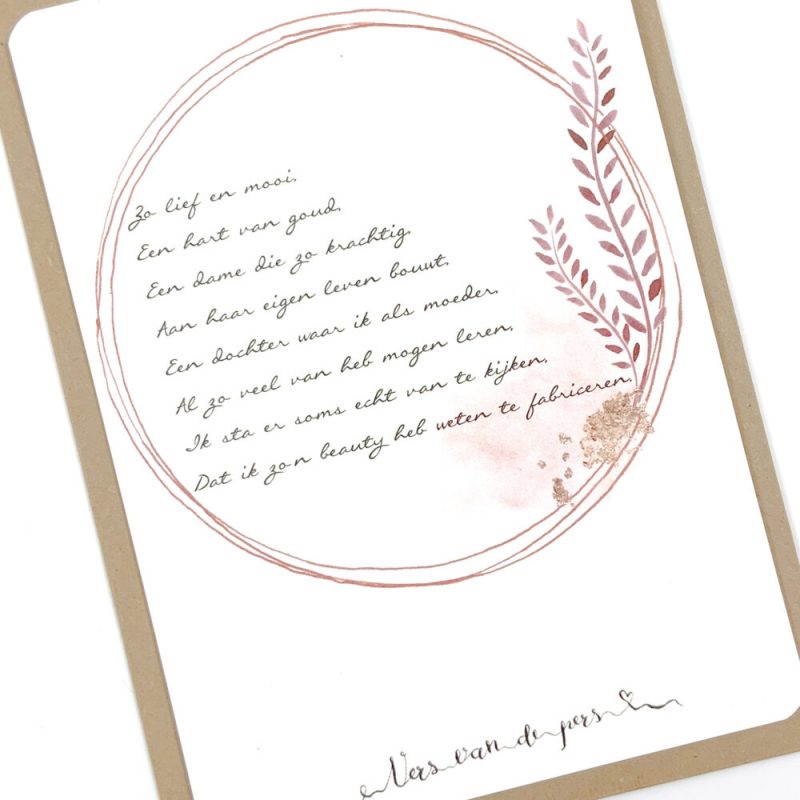 Zo lief en mooi,
Een hart van goud,
Een dame die zo krachtig,
Aan haar eigen leven bouwt,
Een dochter waar ik als moeder,
Al zo veel van heb mogen leren,
Ik sta er soms echt van te kijken,
Dat ik zo'n beauty heb weten te fabriceren.
Vers van de pers